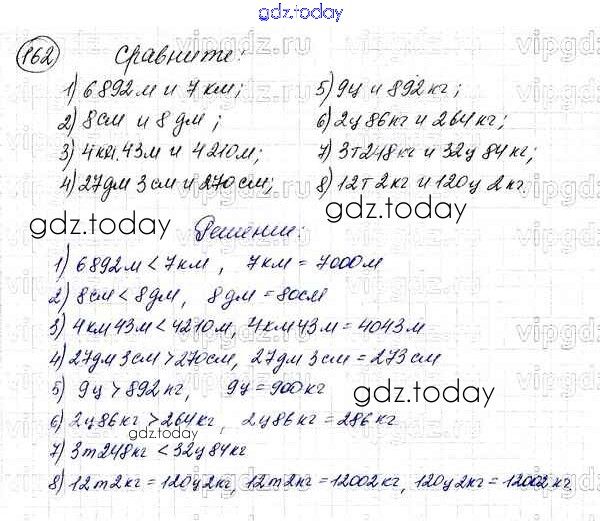 gdz.today
162 Сравните:
1) 6892м и 7км;
2) 8см и 8дм;
3) 4км 43м и 4210м;
4) 27дм 3см и 270см;
5) 9ц и 892кг;
6) 2ц 86кг и 264кг;
7) 3т 248кг и 32ц 84кг;
8) 12т 2кг и 120ц 2кг
gdz.today
gdz.today
Решение:
1) 6892м < 7км, 7км = 7000м
2) 8см < 8дм, 8дм = 80см
3) 4км 43м < 4210м, 4км 43м = 4043м
4) 27дм 3см > 270см, 27дм 3см = 273см
5) 9ц > 892кг, 9ц = 900кг
gdz.today
6) 2ц 86кг > 264кг, 2ц 86кг = 286кг
gdz.today
7) 3т 248кг < 32ц 84кг
8) 12т 2кг = 120ц 2кг, 12т 2кг = 12002кг, 120ц 2кг = 12002кг